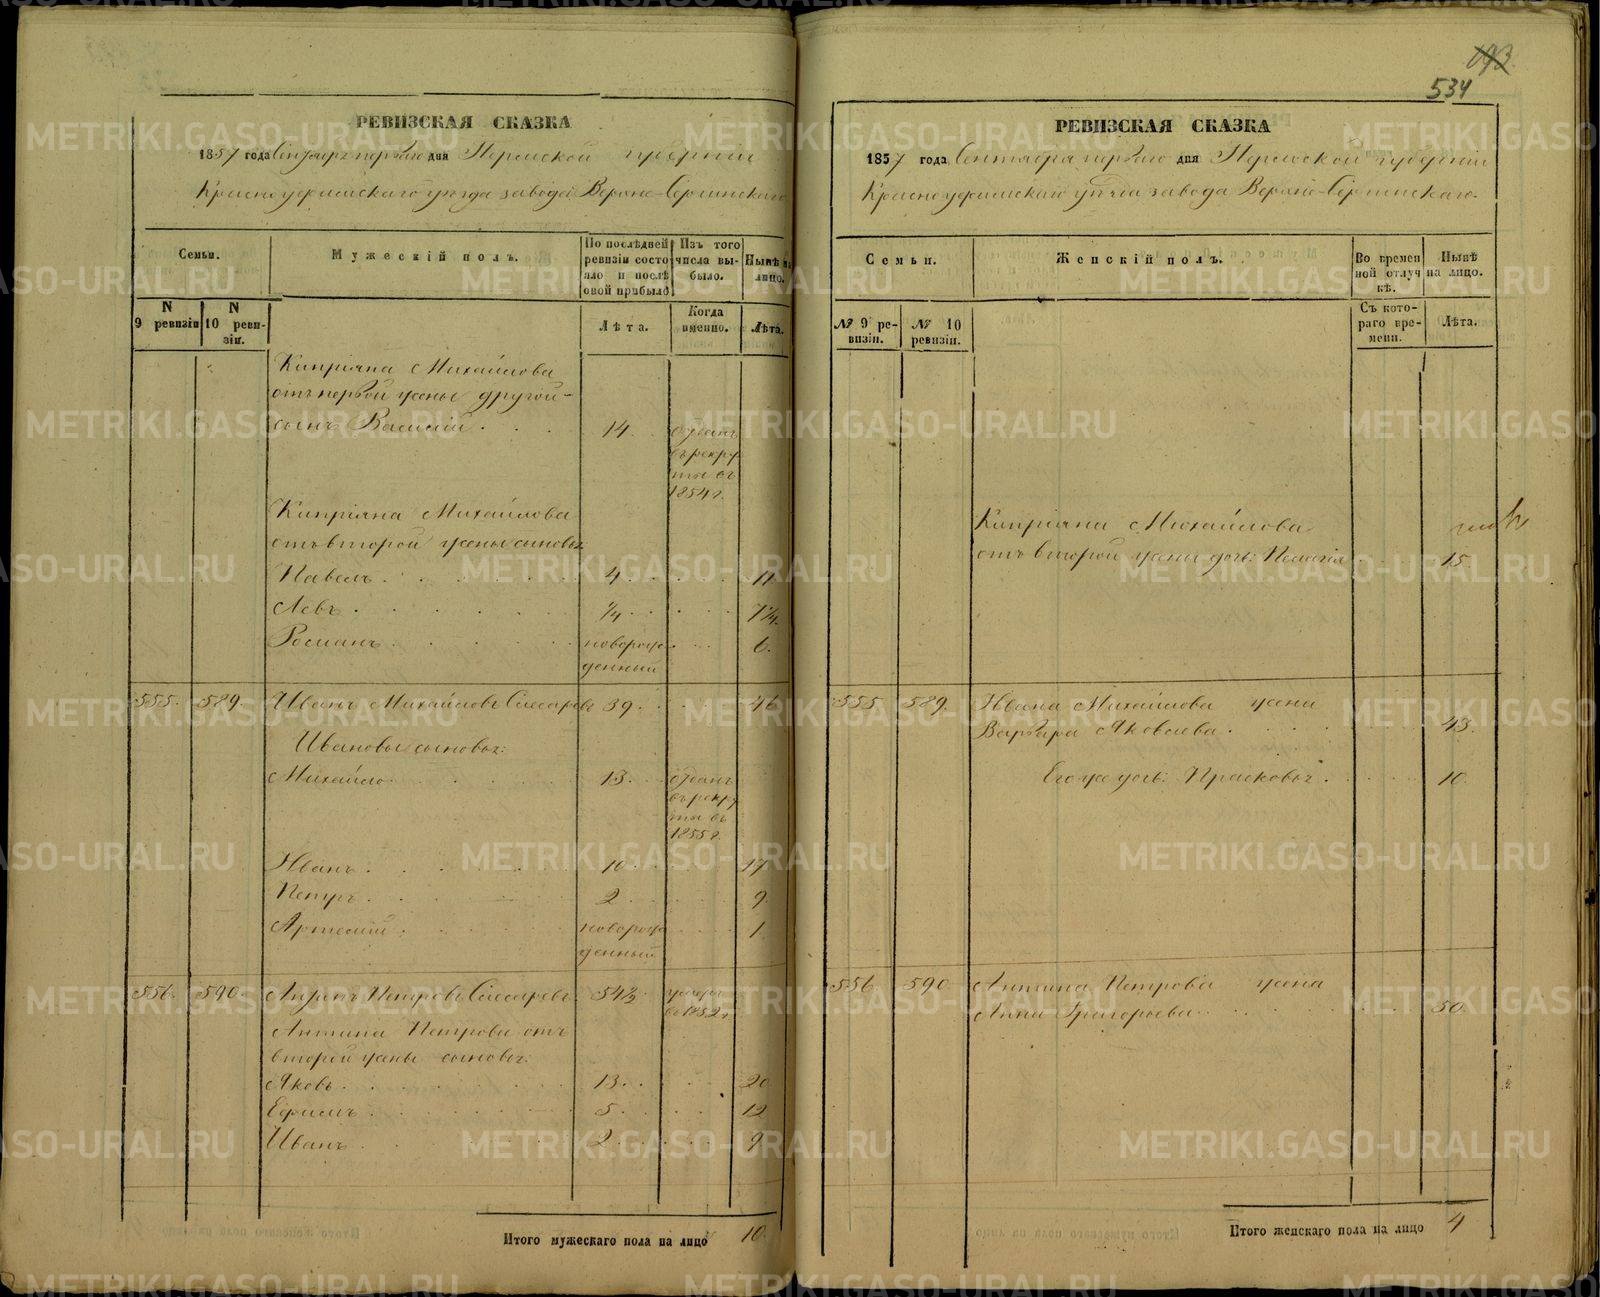 РЕВИЗСКАЯ СКАЗКА
1857 года Сентября первого дня Пермской губерніи
Красноуфимскаго уѣзда завода Верхне-Сергинскаго
Семьи.
N 9 ревизіи
N 10 ревизіи.
Мужескій полъ.
По послѣдней ревизіи состояло и послѣ оной прибыло
Лѣта.
Изъ того числа выбыло.
Когда именно.
Нынѣ на лицо.
Лѣта.
Кипріяна Михайлова
отъ первой жены другой
сынъ Василій 14 отданъ
въ рекру
ты въ
1854 г.
Кипріяна Михайлова
отъ второй жены сыновья
Павелъ 4 11
Левъ 1/4 7 1/4
Романъ новорож 6
денный
555. 589. Иванъ Михайловъ Слесаревъ 39 46
Ивановы сыновья:
Михайло 13 отданъ
въ рекру
ты въ
1855 г.
Иванъ 10 17
Петръ 2 9
Артемій новорож 1
денный
556. 590 Петровъ Слесаревъ 54 1/2 умеръ
въ 1852 г.
Антипа Петрова отъ
второй жены сыновья:
Яковъ 13 20
Ефимъ 5 12
Иванъ 2 9
Итого мужескаго пола на лицо 10
193
534
РЕВИЗСКАЯ СКАЗКА
1857 года Сентября первого дня Пермской губерніи
Красноуфимскаго уѣзда завода Верхне-Сергинскаго.
Семьи.
№ 9 ревизіи.
№ 10 ревизіи.
Женскій полъ.
Во временной отлучкѣ.
Съ котораго времени.
Нынѣ на лицо.
Лѣта.
Кипріяна Михайлова
отъ второй жены дочь: Пелагія 15
555 589 Ивана Михайлова жена
Варвара Яковлева 43
Его же дочь: Прасковья 10
556 590 Антипа Петрова жена
Анна Григорьева 50
Итого женскаго пола на лицо 4
METRIKI.GASO-URAL.RU